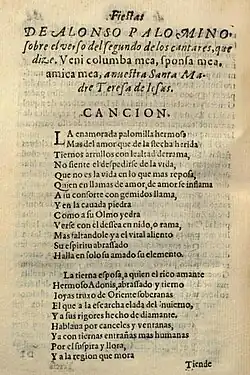 Fiestas
DE ALONSO PALOMINO,
sobre el verso del segundo de los cantares, que
dize. Veni columba mea, sponsa mea,
amica mea, a nuestra Santa Ma
dre Teresa de Iesus.
CANCION.
LA enamorada palomilla hermosa
Mas del amor que de la flecha herida
Tiernos arrullos con lealtad derrama,
No siente el despedirse de la vida,
Que no es la vida en lo que mas reposa,
Quien en llamas de amor, de amor se inflama
A su consorte con gemidos llama,
Y en la cauada piedra
Como a su Olmo yedra
Verse con el dessea en nido, o rama,
Mas faltandole ya el vital aliento
Su espiritu abrassado
Halla en solo su amado su elemento.
La tierna esposa, a quien el rico amante
Hermoso Adonis, abrassado y tierno
Joyas truxo de Oriente soberanas
El que a la escarcha elada del inuierno,
Y a sus rigores hecho de diamante.
Hablaua por canceles y ventanas,
Ya con tiernas entrañas mas humanas
Por el suspira y llora,
Y a la region que mora
Tiende